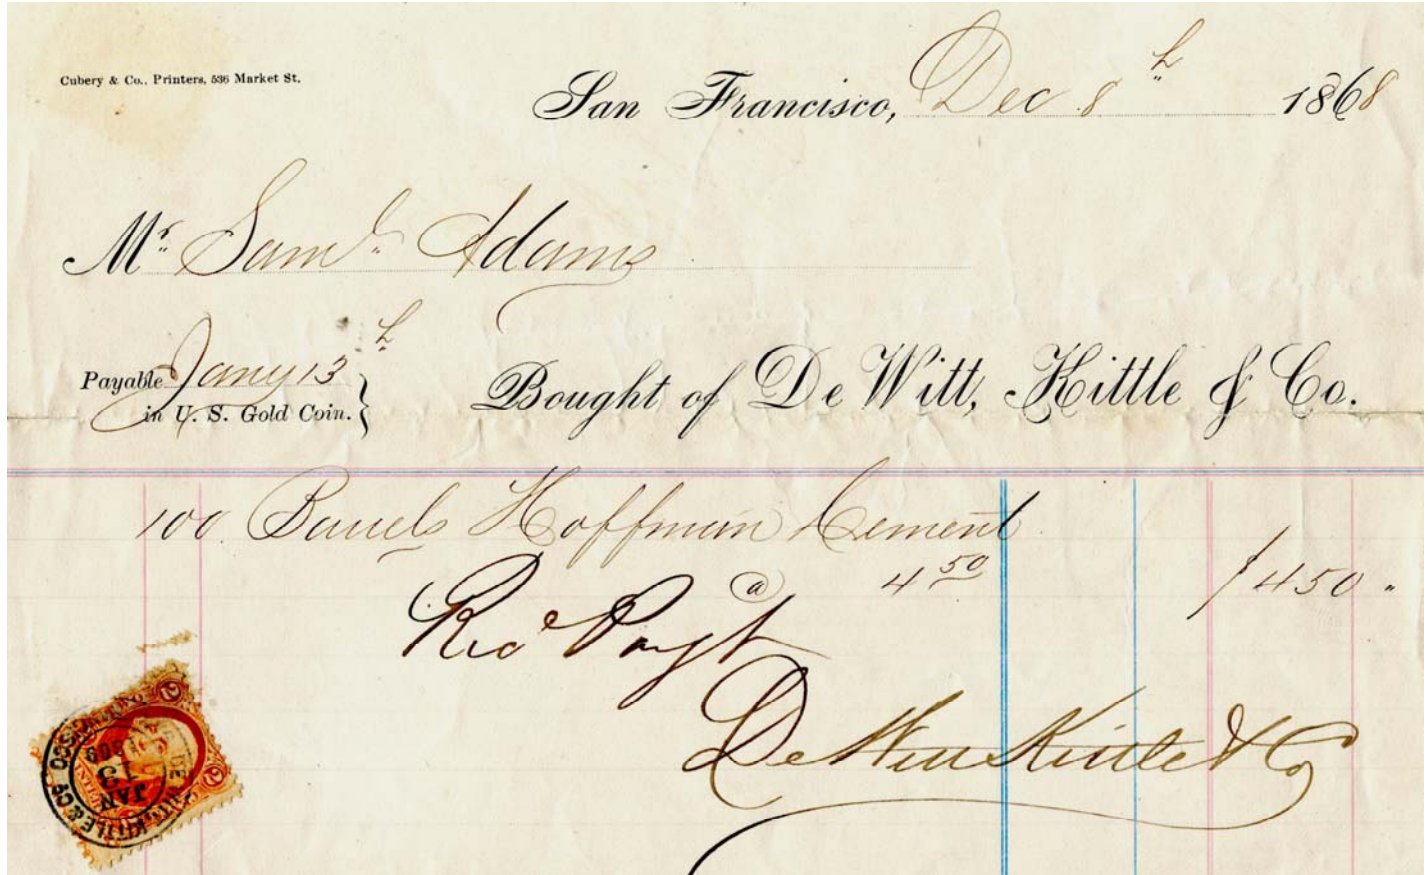 Cubery & Co., Printers, 536 Market St.
San Francisco, Dec 8th 1868
Mr. Saml. Adams
Payable Jany 13th
in U. S. Gold Coin.
Bought of De Witt, Kittle & Co.
100 Barrels Hoffman Cement
@ 4 50 $450 "
Recd Payt
De Witt Kittle & Co
DE WITT, KITTLE & CO.
JAN
13
1869
SAN FRANCISCO
2
2